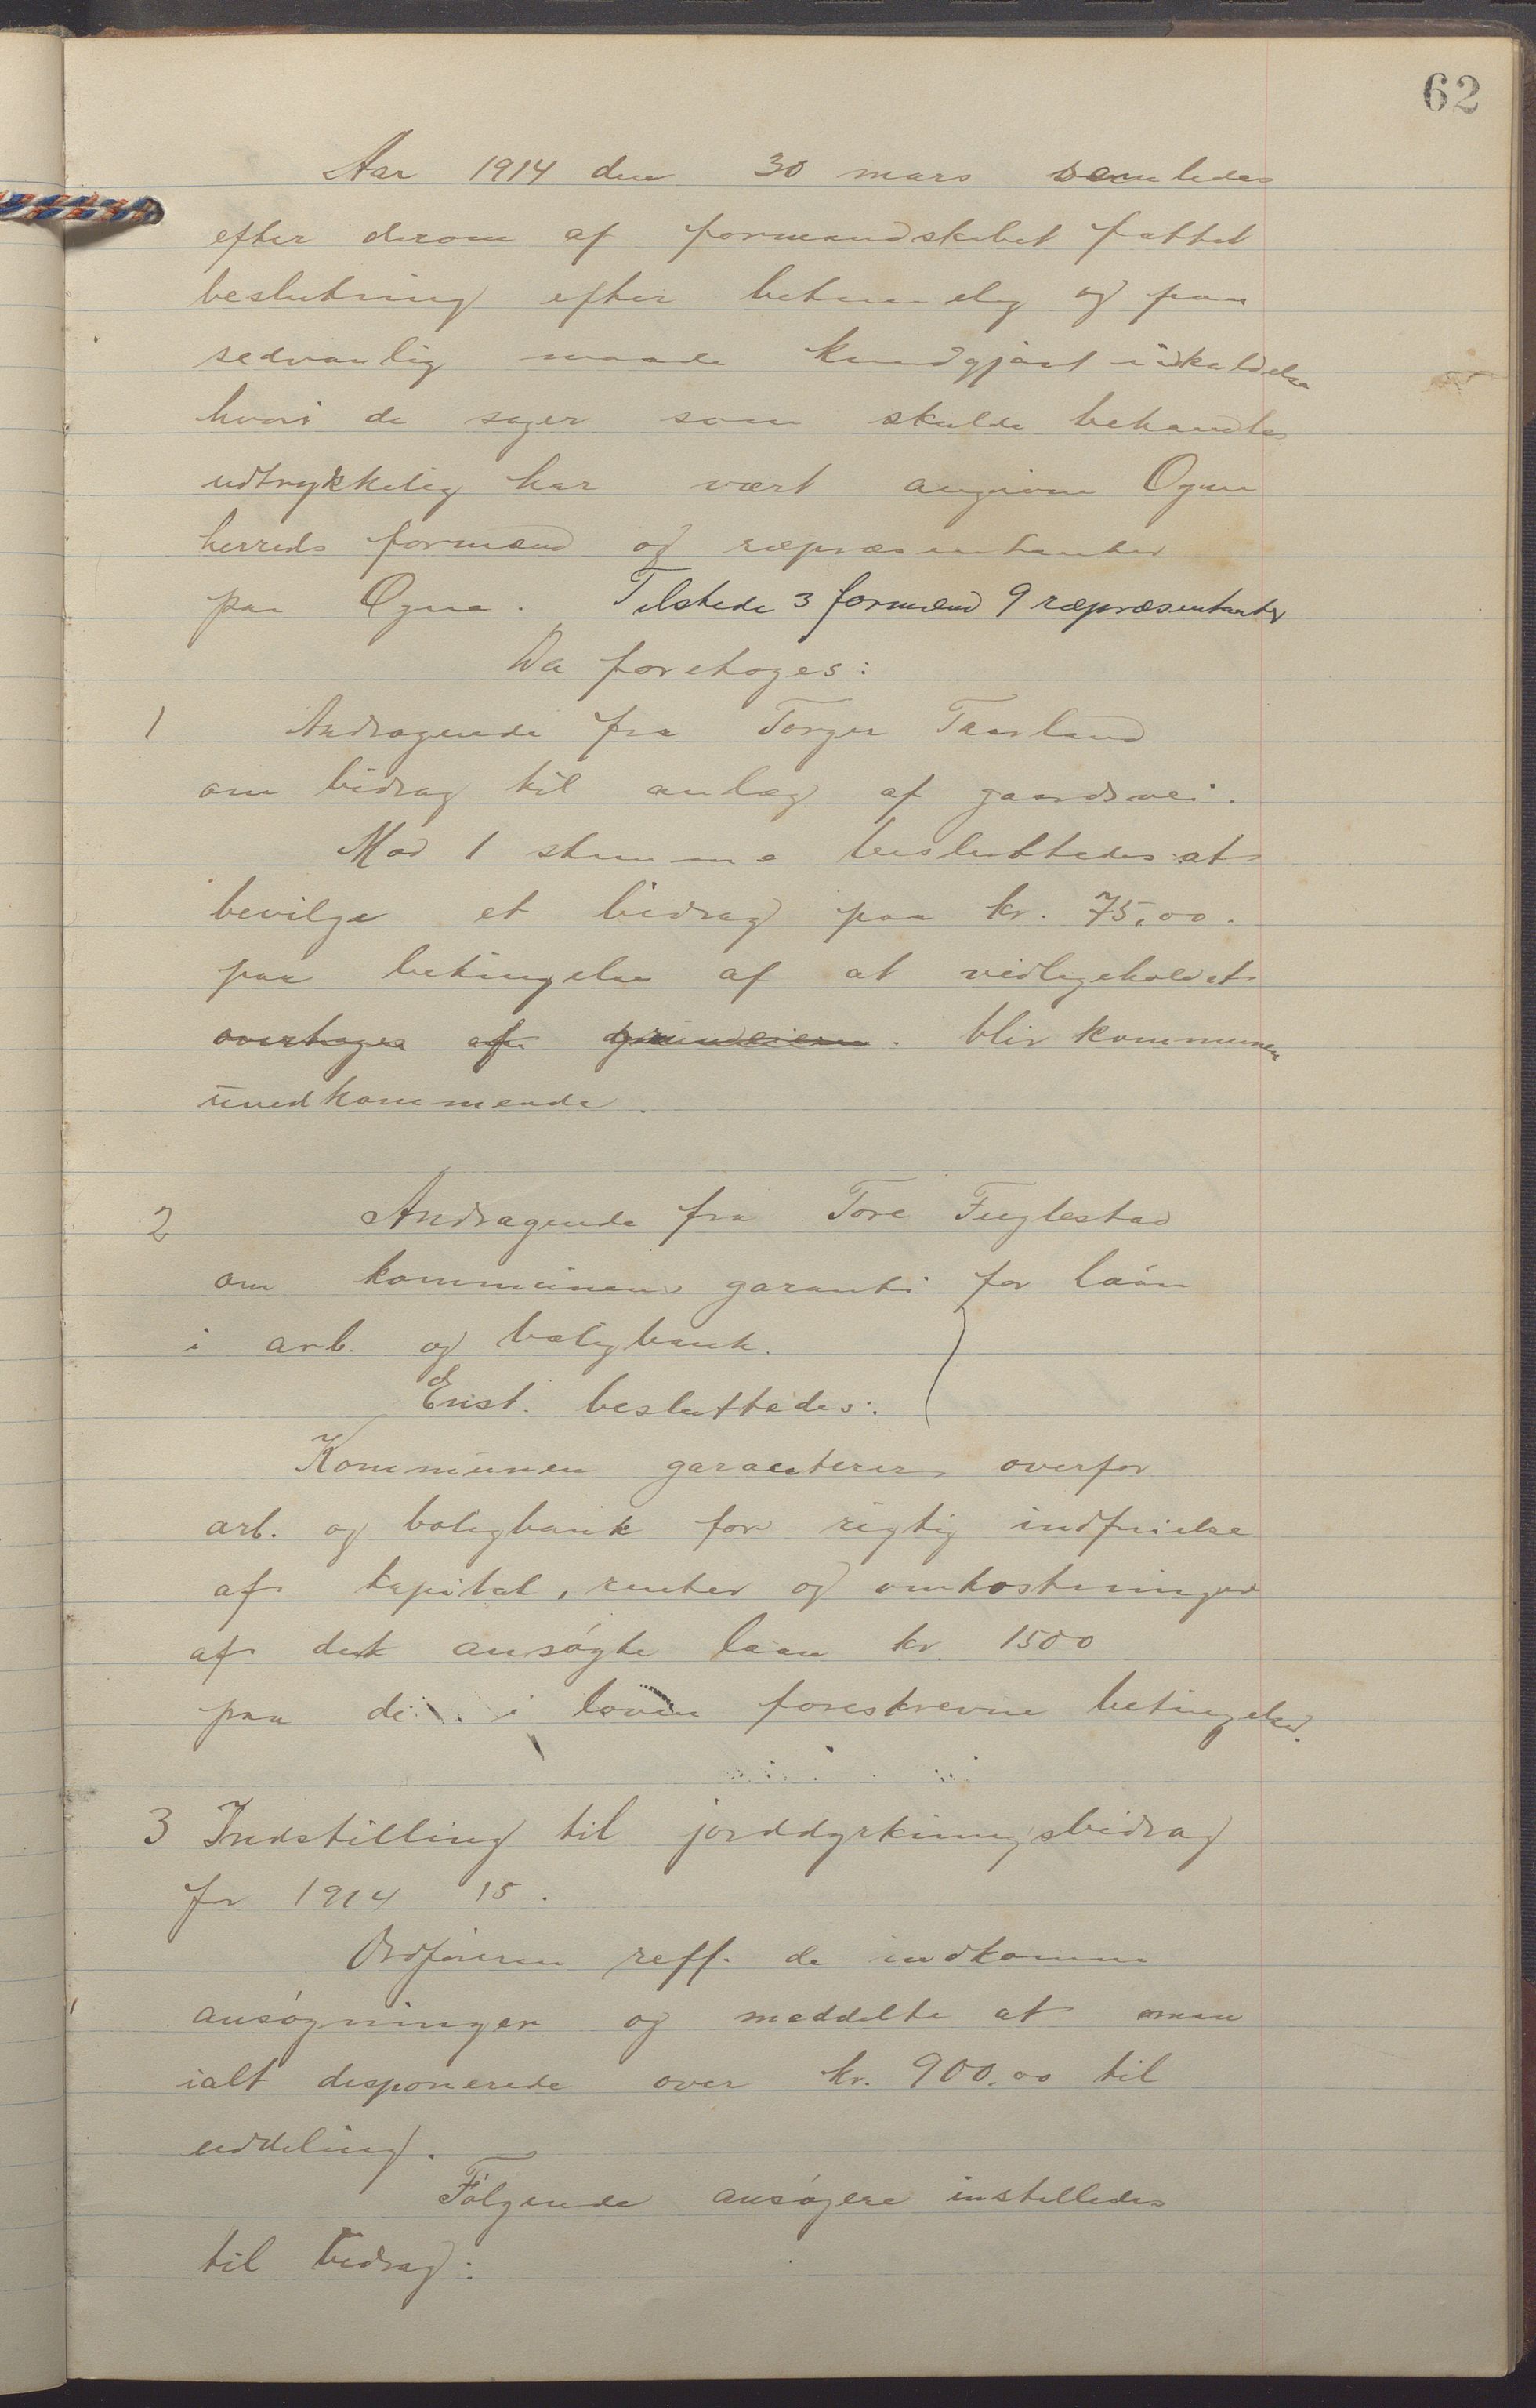 62
Aar 1914 den 30 mars samledes
efter derom af formandskabet fattet
beslutning efter betimelig og paa
sedvanlig maade kundgjort indkaldelse
hvori de sager som skulde behandles
udtrykkelig har vært angivne Ogne
herreds formænd og repræsentanter
paa Ogne. Tilstede 3 formænd 9 repræsentanter
Da foretoges:
1 Andragende fra Torger Taarland
om bidrag til anlæg af gaardsvei.
Mod 1 stemme besluttedes at
bevilge et bidrag paa kr. 75,00.
paa betingelse af at vedligeholdet
overtages af grundeierne. blir kommunen
uvedkommende.
2 Andragende fra Tore Fuglestad
om kommunens garanti for laan
i arb. og boligbank.
Enst. besluttedes:
Kommunen garanterer overfor
arb. og boligbank for rigtig indfrielse
af kapital, renter og omkostninger
af det ansøgte laan kr. 1500
paa de i loven foreskrevne betingelser.
3 Indstilling til jorddyrkningsbidrag
for 1914 15.
Ordføreren reff. de indkomne
ansøgninger og meddelte at man
ialt disponerede over kr. 900.00 til
uddeling.
Følgende ansøgere instilledes
til bidrag: